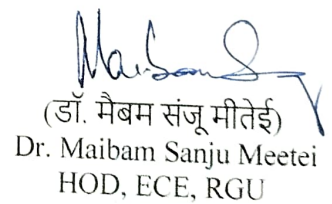 Maibam S
(डॉ. मैबम संजू मीतेई)
Dr. Maibam Sanju Meetei
HOD, ECE, RGU